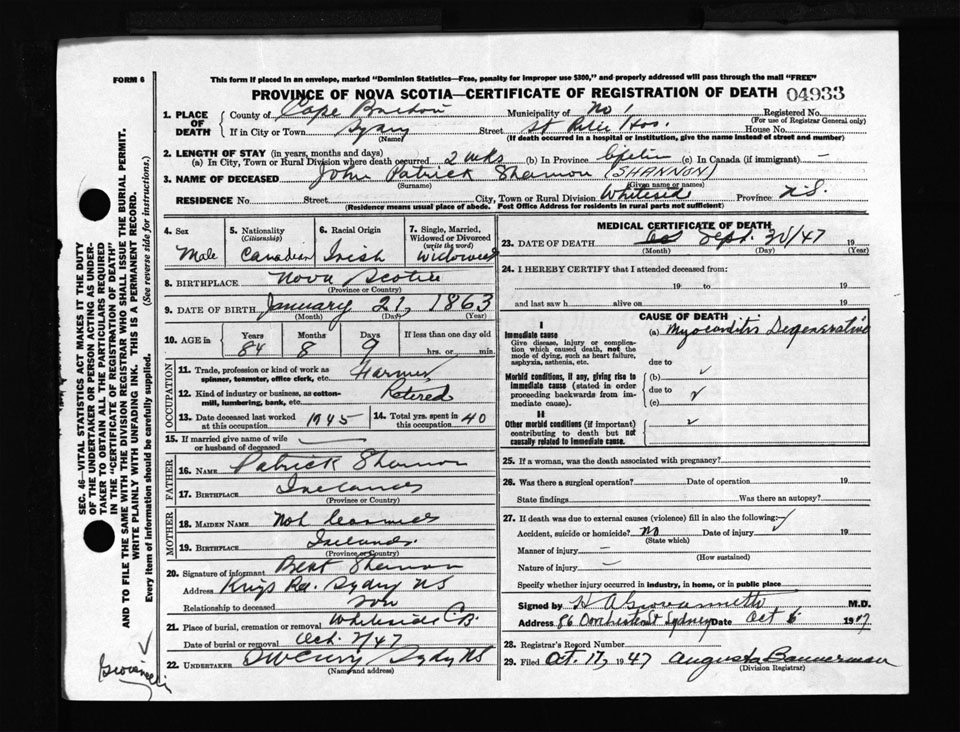 FORM 6
This form if placed in an envelope, marked "Dominion Statistics—Free, penalty for improper use $300," and properly addressed will pass through the mail "FREE"
PROVINCE OF NOVA SCOTIA—CERTIFICATE OF REGISTRATION OF DEATH 04933
1. PLACE OF DEATH
County of Cape Breton Municipality of No 1 Registered No.
(For use of Registrar General only)
If in City or Town Sydney Street House No.
(Name) (If death occurred in a hospital or institution, give the name instead of street and number)
2. LENGTH OF STAY (in years, months and days)
(a) In City, Town or Rural Division where death occurred 2 wks (b) In Province Lifetime (c) In Canada (if immigrant) —
3. NAME OF DECEASED John Patrick Shannon (SHANNON)
(Surname) (Given name or names)
RESIDENCE No. Street City, Town or Rural Division Whiteside Province N.S.
(Residence means usual place of abode. Post Office Address for residents in rural parts not sufficient)
4. Sex Male
5. Nationality (Citizenship) Canadian
6. Racial Origin Irish
7. Single, Married, Widowed or Divorced (write the word) Widowed
8. BIRTHPLACE Nova Scotia
(Province or Country)
9. DATE OF BIRTH January 21, 1863
(Month) (Day) (Year)
10. AGE in Years Months Days If less than one day old
84 8 9 hrs. or min.
OCCUPATION
11. Trade, profession or kind of work as spinner, teamster, office clerk, etc. Farmer
12. Kind of industry or business, as cotton-mill, lumbering, bank, etc. Retired
13. Date deceased last worked at this occupation 1945
14. Total yrs. spent in this occupation 40
15. If married give name of wife or husband of deceased
FATHER
16. NAME Patrick Shannon
17. BIRTHPLACE Ireland
(Province or Country)
MOTHER
18. MAIDEN NAME Not learned
19. BIRTHPLACE Ireland
(Province or Country)
20. Signature of informant Bert Shannon
Address Kings Rd. Sydney NS
Relationship to deceased son
21. Place of burial, cremation or removal Whiteside C.B.
Date of burial or removal Oct. 2/47
22. UNDERTAKER Sydney NS
(Name and address)
MEDICAL CERTIFICATE OF DEATH
23. DATE OF DEATH Sept. 30/47 19
(Month) (Day) (Year)
24. I HEREBY CERTIFY that I attended deceased from:
19 to 19
and last saw h alive on 19
CAUSE OF DEATH
I
Immediate cause (a) Myocarditis Degenerative
Give disease, injury or complication which caused death, not the mode of dying, such as heart failure, asphyxia, asthenia, etc.
due to
Morbid conditions, if any, giving rise to immediate cause (stated in order proceeding backwards from immediate cause).
(b)
due to
(c)
II
Other morbid conditions (if important) contributing to death but not causally related to immediate cause.
25. If a woman, was the death associated with pregnancy?
26. Was there a surgical operation? Date of operation 19
State findings Was there an autopsy?
27. If death was due to external causes (violence) fill in also the following:
Accident, suicide or homicide? no Date of injury 19
(State which)
Manner of injury —
(How sustained)
Nature of injury —
Specify whether injury occurred in industry, in home, or in public place
Signed by H A Giovannetti M.D.
Address 86 Dorchester St Sydney Date Oct 6 1947
28. Registrar's Record Number
29. Filed Oct. 17, 1947 Augusta Bannerman
(Division Registrar)
SEC. 46—VITAL STATISTICS ACT MAKES IT THE DUTY
OF THE UNDERTAKER OR PERSON ACTING AS UNDER-
TAKER TO OBTAIN ALL THE PARTICULARS REQUIRED
IN THE "CERTIFICATE OF REGISTRATION OF DEATH"
AND TO FILE THE SAME WITH THE DIVISION REGISTRAR WHO SHALL ISSUE THE BURIAL PERMIT.
WRITE PLAINLY WITH UNFADING INK. THIS IS A PERMANENT RECORD.
Every item of information should be carefully supplied. (See reverse side for instructions.)